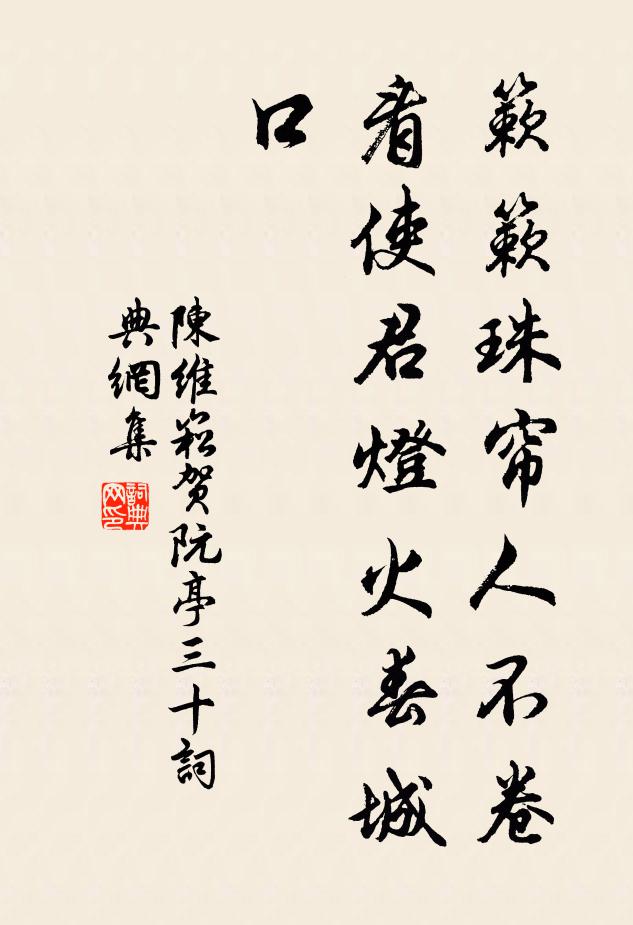 簌簌珠帘人不卷
看使君燈火春城
口
陳維崧贺阮亭三十詞
典網集
詞典
网印